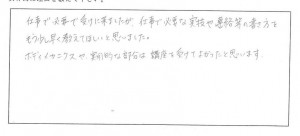 仕事で必要で受けに来ましたが、仕事で必要な実技や連絡等の書き方を
もう少し早く教えてほしいと思いました。
ボディメカニクスや、専門的な部分は講座を受けてよかったと思います。